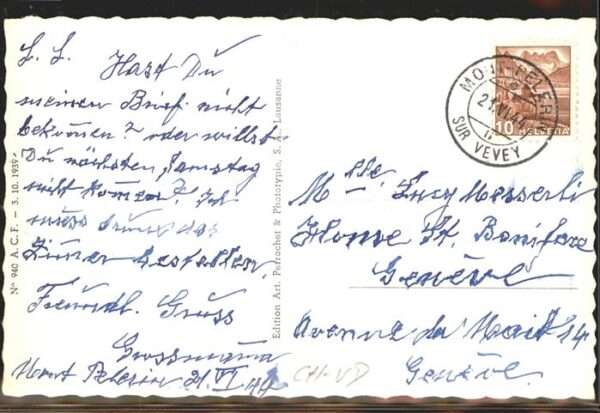 L. L. Hast Du
meinen Brief nicht
bekommen? oder willst
Du nächsten Samstag
nicht kommen? Ich
muss drum das
Zimer bestellen.
Freundl. Gruss
Grossmama
Mont Pelerin 21. VI. 44
Nº 940 A. C. F. - 3. 10. 1939.
Edition Art. Perrochet & Phototypie, S. Lausanne
MONT-PELERIN
21.VI.44
SUR VEVEY
10 HELVETIA
Mlle. Lucy Messerli
Home St. Boniface
Genève
Avenue du Mail 14
Genève.
CH-VD